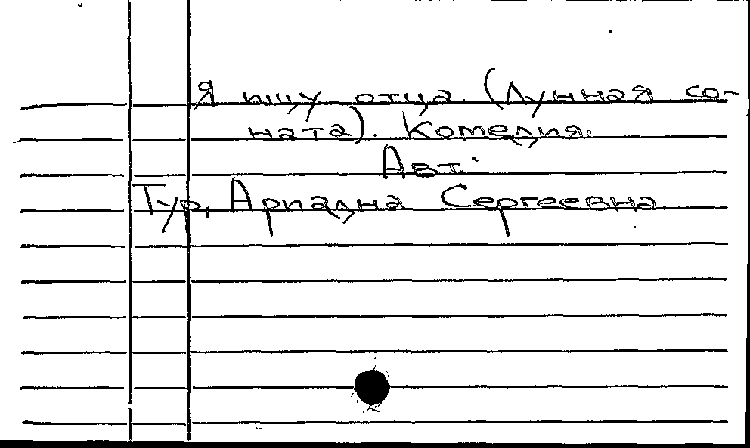 Я ищу отца (Лунная со-
ната). Комедия.
Авт.:
Тур, Ариадна Сергеевна